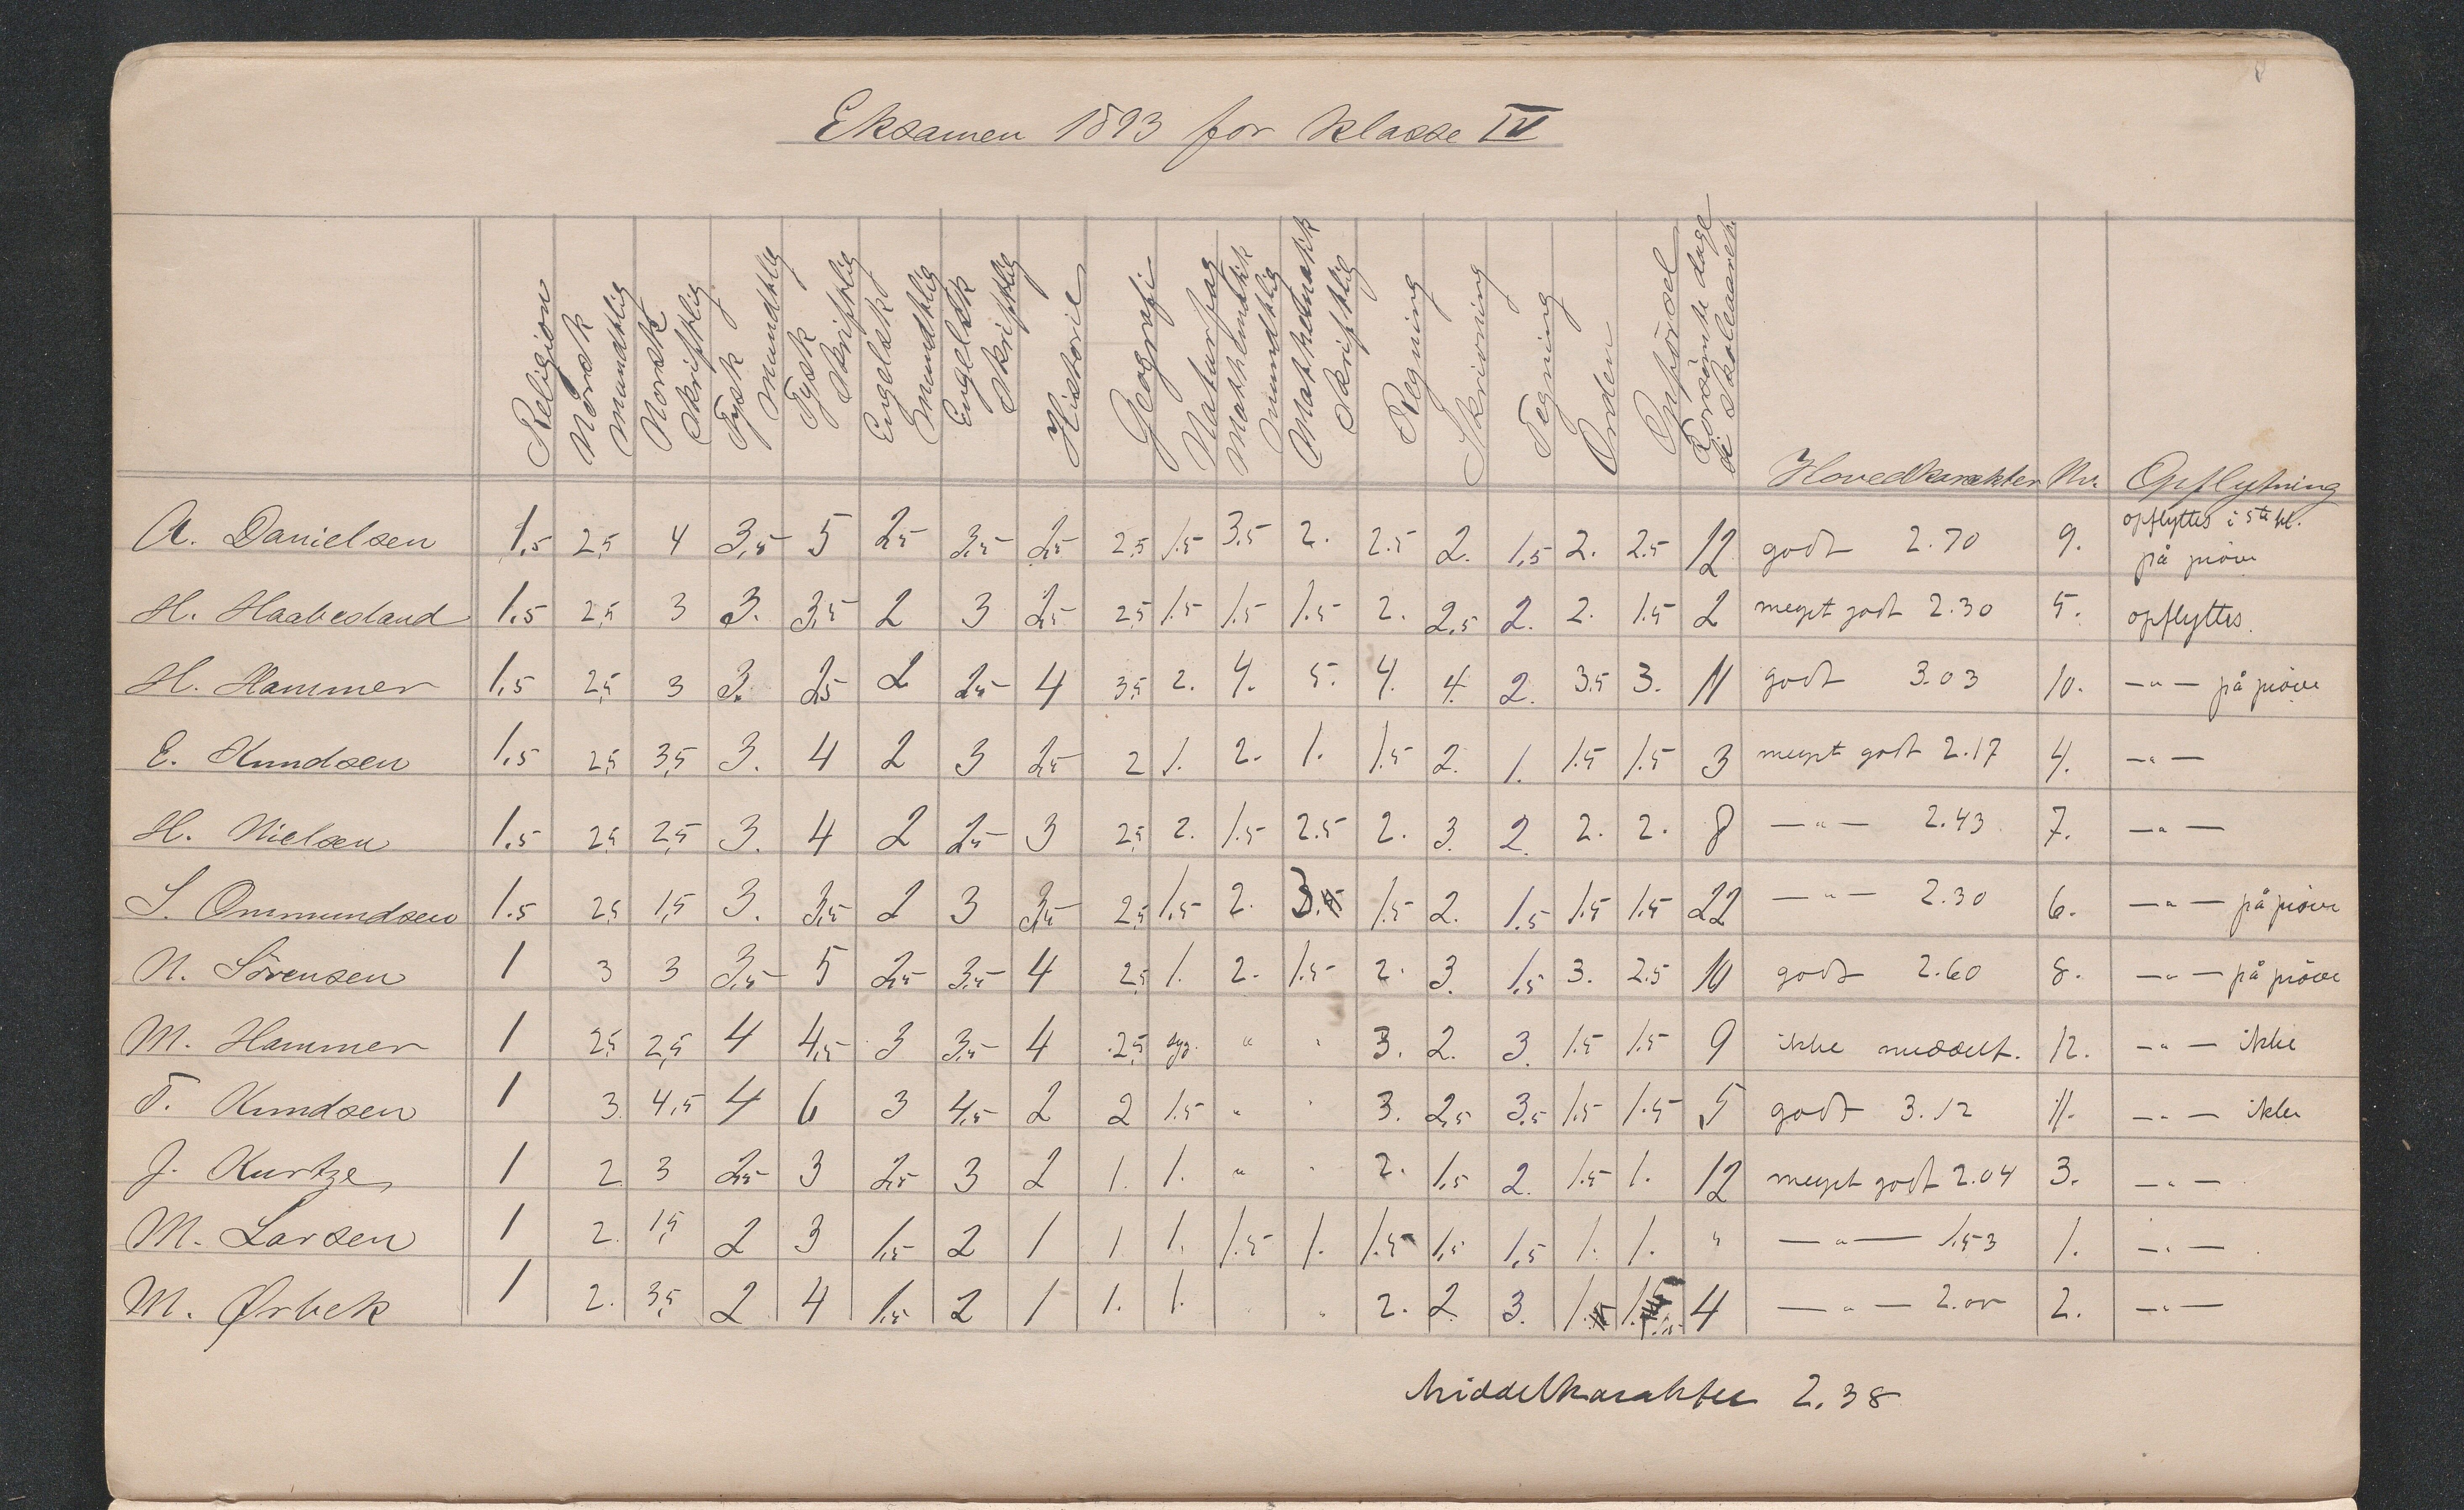 Eksamen 1893 for klasse IV
Religion Norsk Mundtlig Norsk Skriftlig Tysk Mundtlig Tysk Skriftlig Engelsk Mundtlig Engelsk Skriftlig Historie Geografi Naturfag Mathematik mundtlig Mathematik Skriftlig Regning Skrivning Tegning Orden Opførsel Forsømte dage i Skoleaaret Hovedkarakter Nr. Opflytning
A. Danielsen 1,5 2,5 4 3,5 5 2,5 3,5 2,5 2,5 1.5 3.5 2. 2.5 2. 1,5 2. 2.5 12 godt 2.70 9. opflyttes i 5te kl. på prøve
H. Haabesland 1.5 2,5 3 3. 3,5 2 3 2,5 2,5 1.5 1.5 1.5 2. 2,5 2. 2. 1.5 2 meget godt 2.30 5. opflyttes.
H. Hammer 1,5 2,5 3 3. 2,5 2 2,5 4 3,5 2. 4. 5. 4. 4. 2. 3.5 3. 11 godt 3.03 10. — " — på prøve
E. Knudsen 1,5 2,5 3,5 3. 4 2 3 2,5 2 1. 2. 1. 1.5 2. 1. 1.5 1.5 3 meget godt 2.17 4. — " —
H. Nielsen 1.5 2,5 2,5 3. 4 2 2,5 3 2,5 2. 1.5 2.5 2. 3. 2. 2. 2. 8 — " — 2.43 7. — " —
S. Ommundsen 1.5 2,5 1,5 3. 3,5 2 3 3,5 2,5 1.5 2. 3. 1.5 2. 1.5 1.5 1.5 22 — " — 2.30 6. — " — på prøve
N. Sørensen 1 3 3 3,5 5 2,5 3,5 4 2,5 1. 2. 1.5 2. 3. 1,5 3. 2.5 10 godt 2.60 8. — " — på prøve
M. Hammer 1 2,5 2,5 4 4,5 3 3,5 4 2,5 syg. " " 3. 2. 3. 1.5 1.5 9 ikke meddelt. 12. — " — ikke
T. Knudsen 1 3. 4,5 4 6 3 4,5 2 2 1.5 " " 3. 2,5 3,5 1.5 1.5 5 godt 3.12 11. — " — ikke
J. Kurtze 1 2 3 2,5 3 2,5 3 2 1. 1. " " 2. 1,5 2. 1.5 1. 12 meget godt 2.04 3. — " —
M. Larsen 1 2. 1,5 2 3 1,5 2 1 1. 1. 1.5 1. 1.5 1,5 1,5 1. 1. " — " — 1.53 1. — " —
M. Ørbek 1 2. 3,5 2 4 1,5 2 1 1. 1. " " 2. 2. 3. 1. 4 — " — 2.00 2. — " —
Middelkarakter 2.38